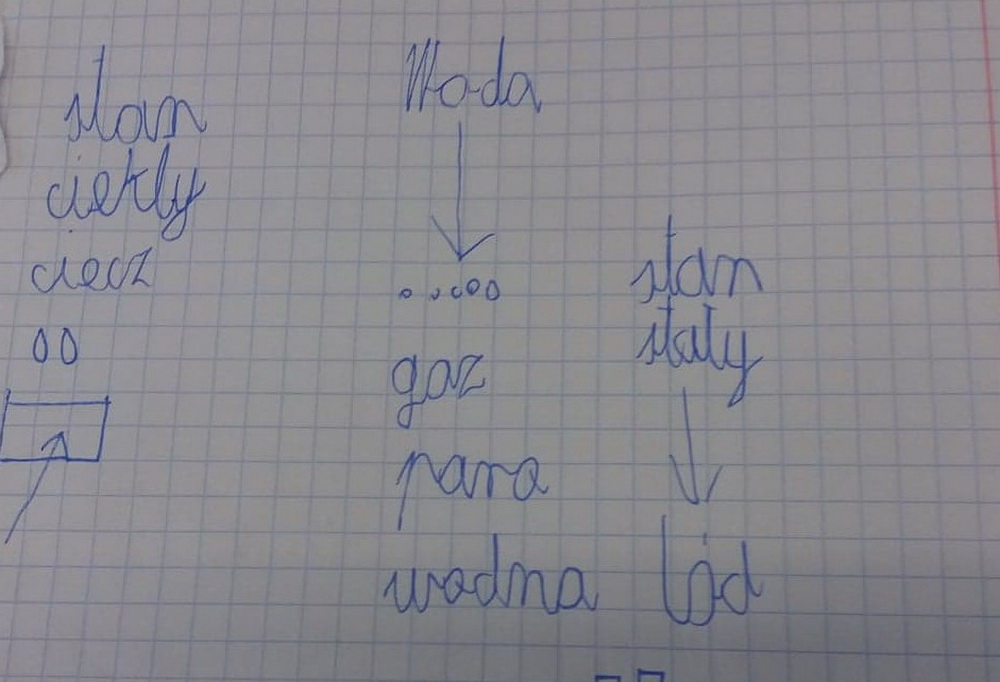 Woda
stan
ciekły
ciecz
gaz
para
wodna
stan
stały
lód